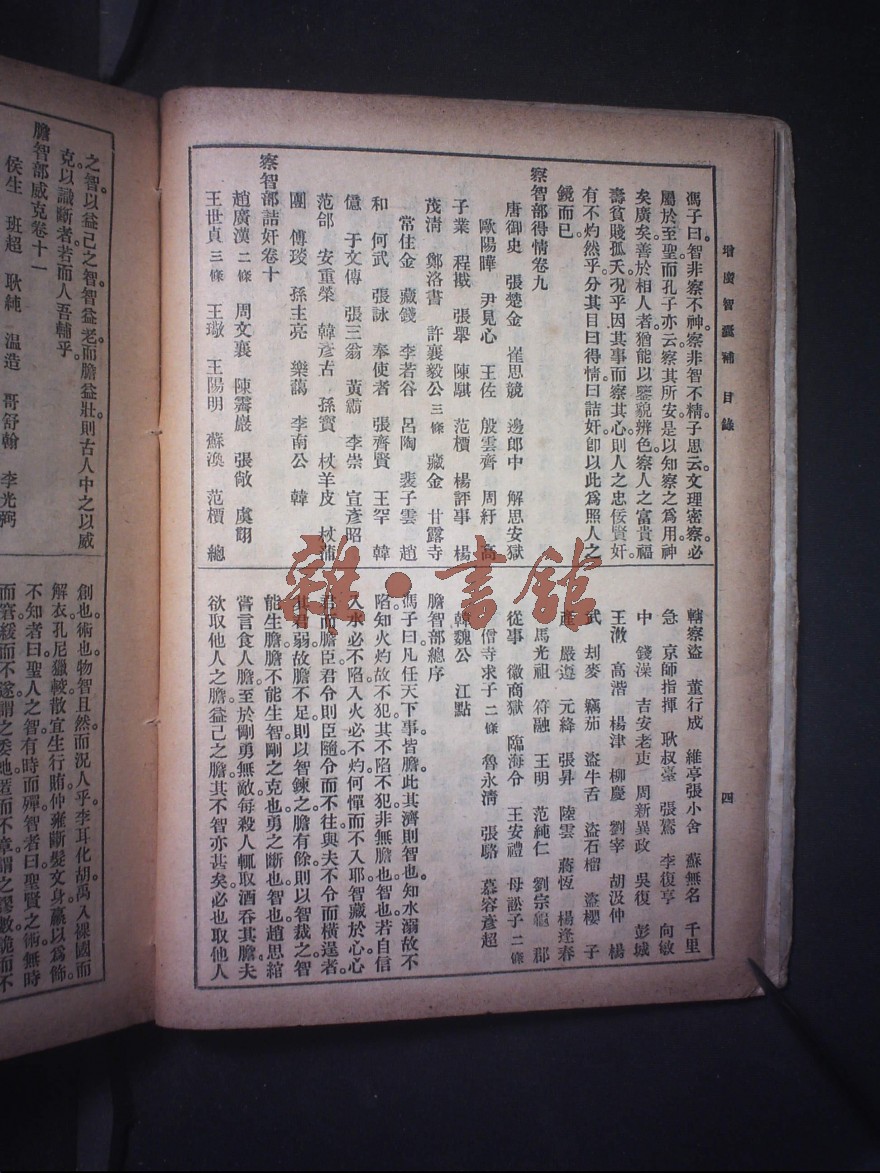 增廣智囊補 目錄
四
馮子曰。智非察不神。察非智不精。子思云。文理密察。必
屬於至聖。而孔子亦云。察其所安。是以知察之爲用。神
矣廣矣。善於相人者。猶能以鑒貌辨色。察人之富貴福
壽貧賤孤夭。況乎因其事而察其心。則人之忠佞賢奸。
有不灼然乎。分其目曰得情。曰詰奸。卽以此爲照人之
鏡而已。
察智部得情卷九
唐御史 張楚金 崔思競 邊郎中 解思安獄
歐陽曄 尹見心 王佐 殷雲霽 周紆 高
子業 程戡 張舉 陳騏 范檟 楊評事 楊
茂清 鄭洛書 許襄毅公三條 藏金 甘露寺
常住金 藏錢 李若谷 呂陶 裴子雲 趙
和 何武 張詠 奉使者 張齊賢 王罕 韓
億 于文傳 張三翁 黃霸 李崇 宣彥昭
范邰 安重榮 韓彥古 孫寶 杖羊皮 杖蒲
團 傅琰 孫主亮 樂藹 李南公 韓
察智部詰奸卷十
趙廣漢二條 周文襄 陳霽巖 張敞 虞詡
王世貞三條 王璥 王陽明 蘇渙 范檟 總
轄察盜 董行成 維亭張小舍 蘇無名 千里
急 京師指揮 耿叔臺 張鷟 李復亨 向敏
中 錢藻 吉安老吏 周新異政 吳復 彭城
王浟 高湝 楊津 柳慶 劉宰 胡汲仲 楊
武 刲麥 竊茄 盜牛舌 盜石榴 盜櫻 子
產 嚴遵 元絳 張昇 陸雲 蔣恆 楊逢春
馬光祖 符融 王明 范純仁 劉宗龜 郡
從事 徽商獄 臨海令 王安禮 母訟子二條
僧寺求子二條 魯永清 張駱 慕容彥超
韓魏公 江點
膽智部總序
馮子曰。凡任天下事。皆膽。此其濟則智也。知水溺。故不
陷。知火灼。故不犯。其不陷不犯。非無膽也。智也。若自信
入水必不陷。入火必不灼。何憚而不入耶。智藏於心。心
君而膽臣。君令則臣隨。令而不往。與夫不令而橫逞者。
其君弱。故膽不足。則以智鍊之。膽有餘。則以智裁之。智
能生膽。膽不能生智。剛之克也。勇之斷也。智也。趙思綰
嘗言食人膽至於剛勇無敵。每殺人輒取酒吞其膽。夫
欲取他人之膽。益己之膽。其不智亦甚矣。必也取他人
之智。以益己之智。智益老而膽益壯。則古人中之以威
克。以識斷者。若而人。吾輔乎。
膽智部威克卷十一
侯生 班超 耿純 溫造 哥舒翰 李光弼
創也。術也。物智且然。而況人乎。李耳化胡。禹入裸國而
解衣。孔尼獵較。散宜生行賄。仲雍斷髮文身。臝以爲飾。
不知者曰。聖人之智。有時而殫。智者曰。聖賢之術。無時
而窘。緩而不遂。謂之委蛇。匿而不章。謂之謬數。詭而不
雜·書館